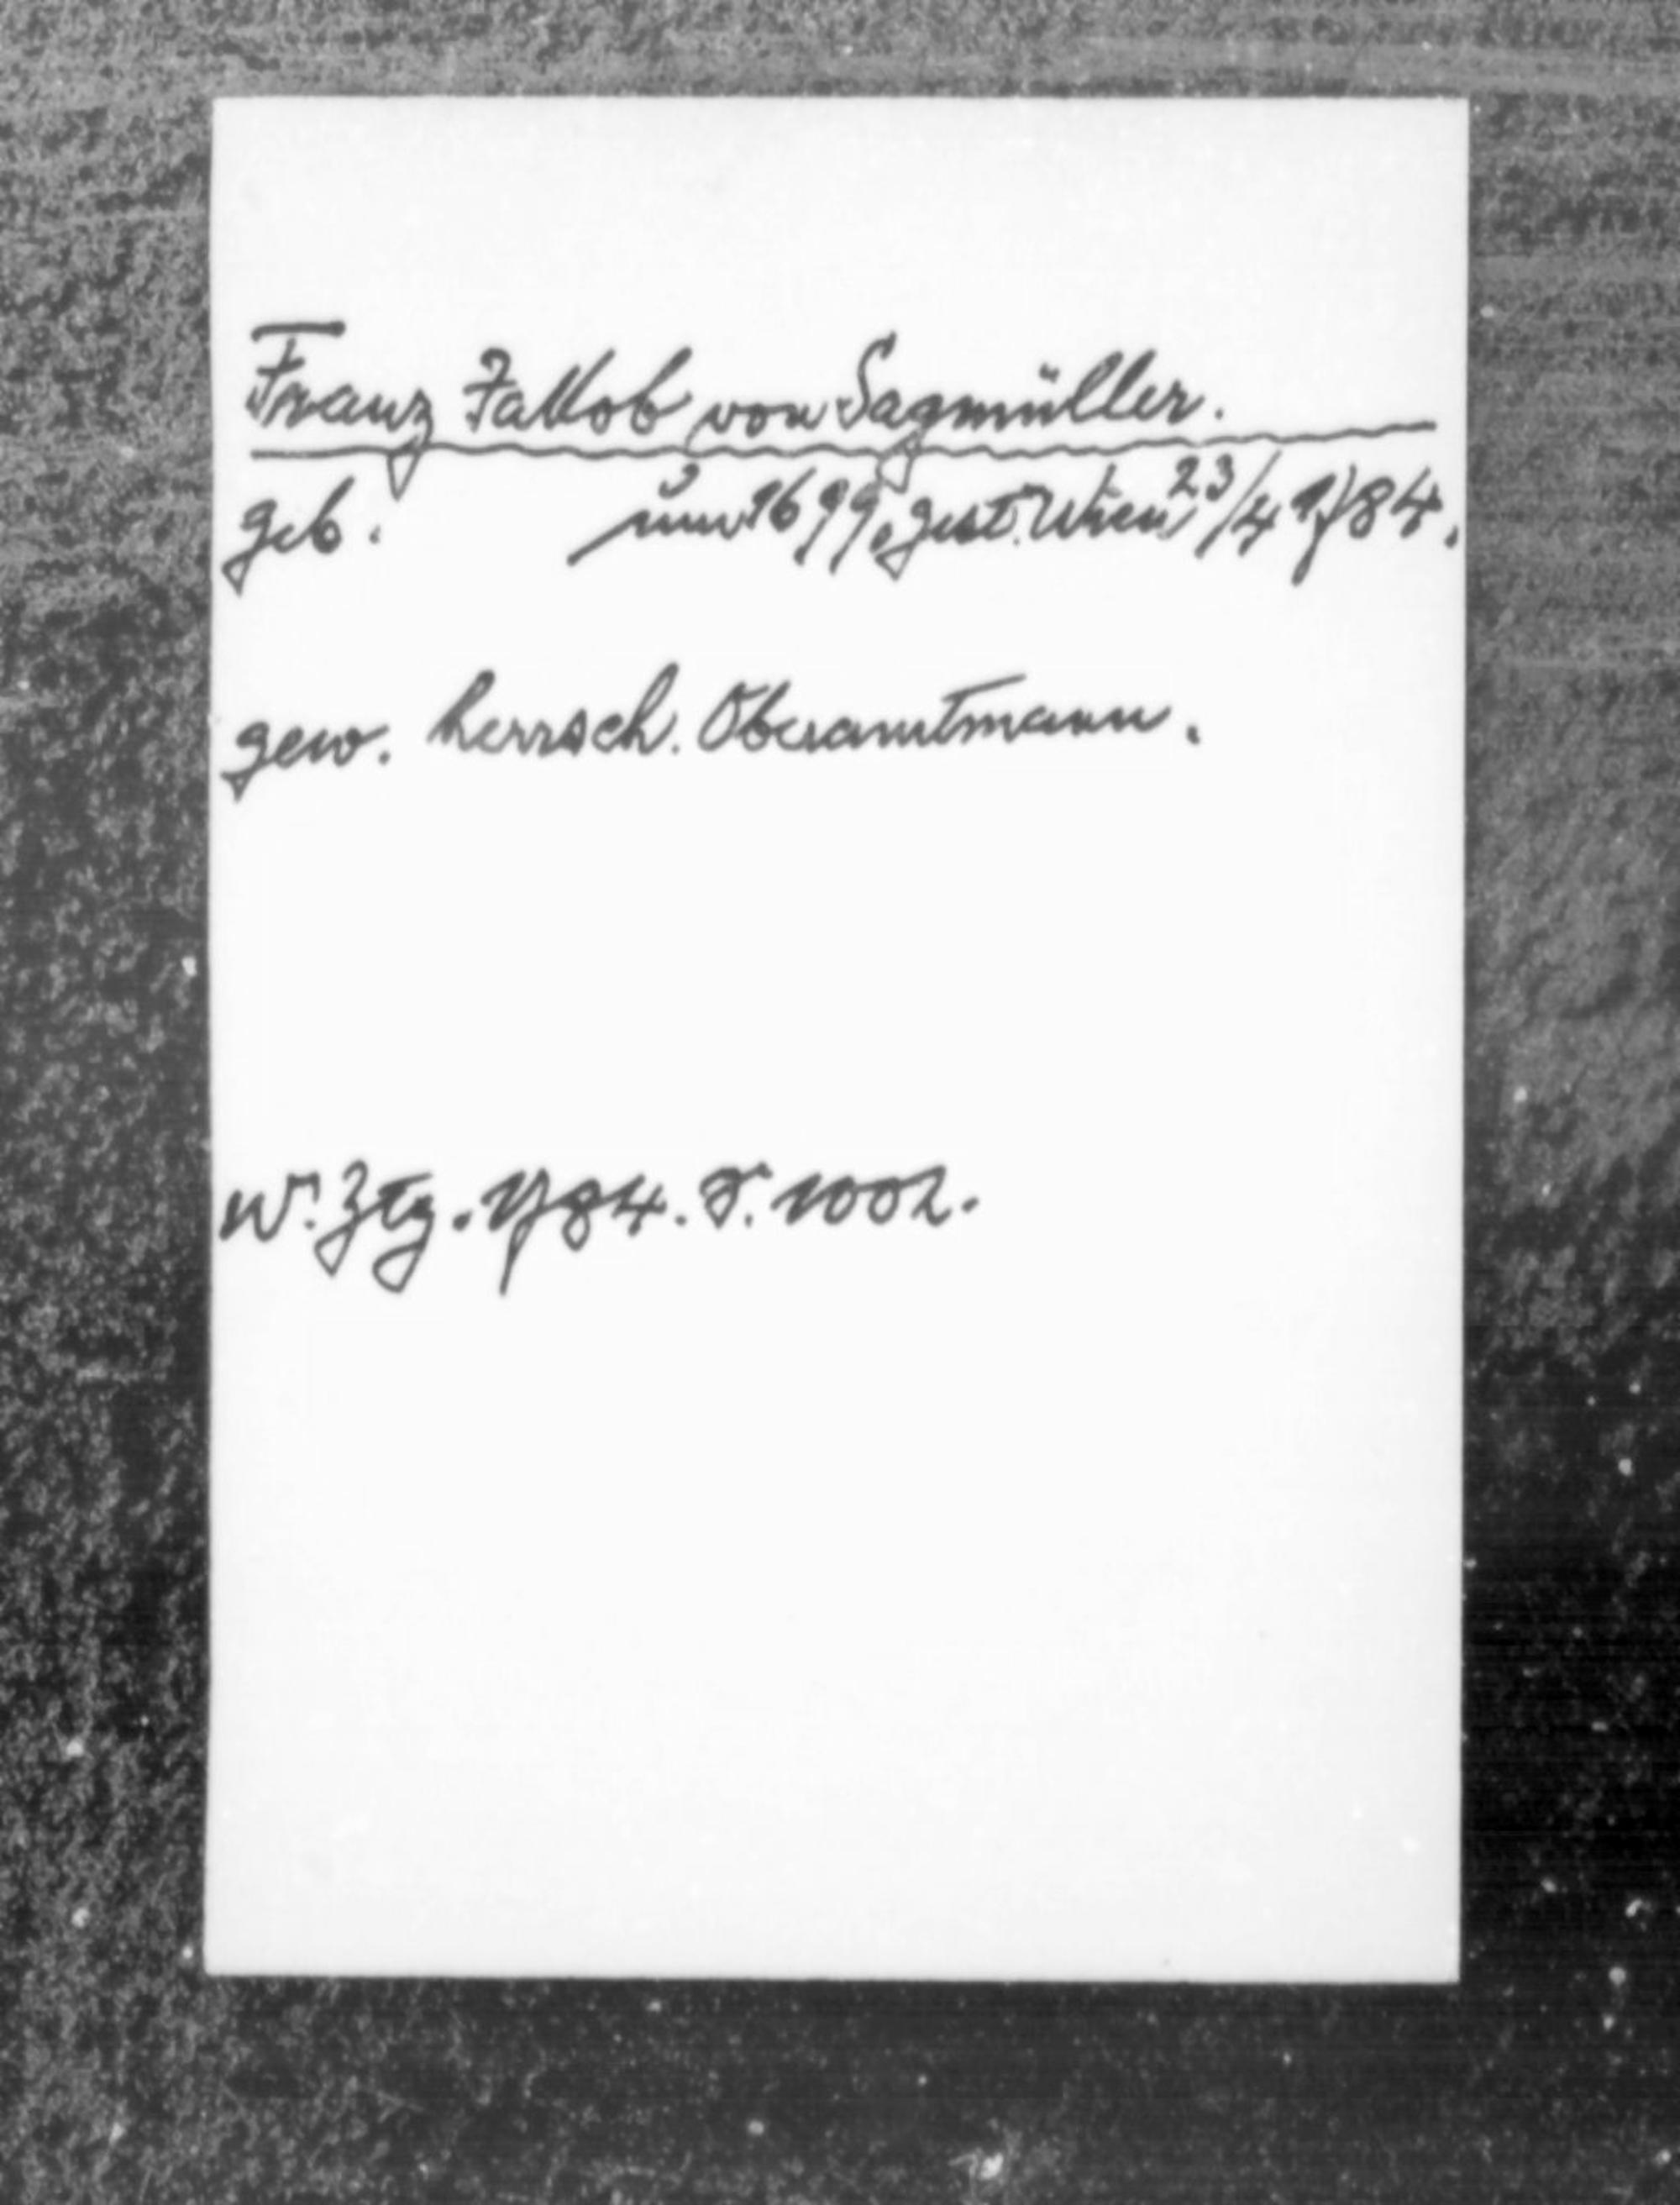 Franz Jakob von Sagmüller.
geb. um 1699, gest. Wien 23/4 1784.
gew. herrsch. Oberamtmann.
W. Ztg. 1784. S. 1002.